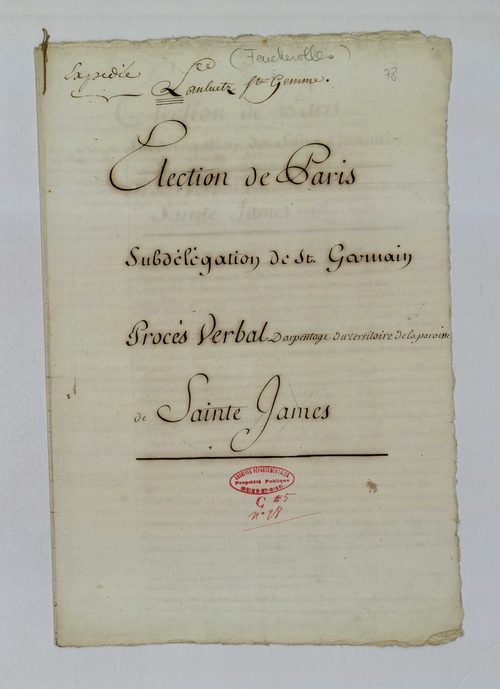 (Feucherolles)
78
Expédié
Ste Gemme.
Election de Paris
Subdélégation de St. Germain
Procés Verbal D'arpentage du territoire de la paroisse
de Sainte James
ARCHIVES DÉPARTEMENTALES
Propriété Publique
SEINE-ET-OISE
C #5
n° 28